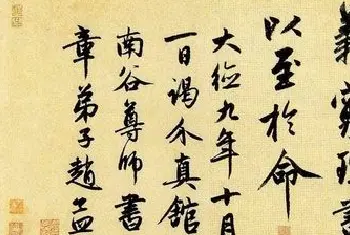 義窮理盡
以至於命
大德九年十月
一日謁介真館
南谷尊師書
章弟子趙孟